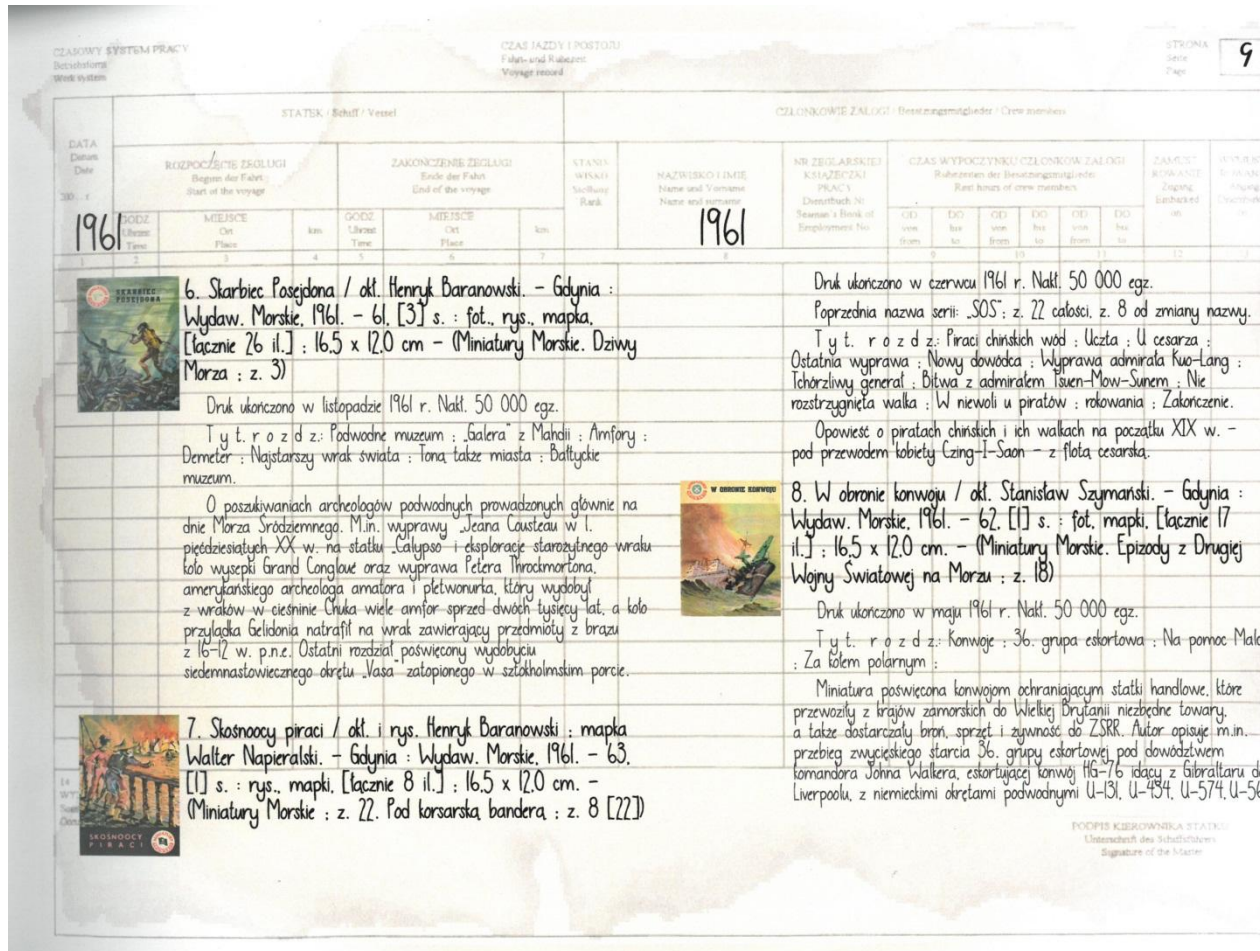 CZASOWY SYSTEM PRACY
Betriebsform
Work system
CZAS JAZDY I POSTOJU
Fahrt- und Ruhezeit
Voyage record
STRONA
Seite
Page
9
STATEK / Schiff / Vessel
CZŁONKOWIE ZAŁOGI / Besatzungsmitglieder / Crew members
DATA
Datum
Date
200... r.
ROZPOCZĘCIE ŻEGLUGI
Beginn der Fahrt
Start of the voyage
ZAKOŃCZENIE ŻEGLUGI
Ende der Fahrt
End of the voyage
STANO-
WISKO
Stellung
Rank
NAZWISKO I IMIĘ
Name und Vorname
Name and surname
NR ŻEGLARSKIEJ
KSIĄŻECZKI
PRACY
Dienstbuch Nr
Seaman's Book of
Employment No
CZAS WYPOCZYNKU CZŁONKÓW ZAŁOGI
Ruhezeiten der Besatzungsmitglieder
Rest hours of crew members
ZAMUST-
ROWANIE
Zugang
Embarked
on
GODZ
Uhrzeit
Time
MIEJSCE
Ort
Place
km
GODZ
Uhrzeit
Time
MIEJSCE
Ort
Place
km
OD
von
from
DO
bis
to
OD
von
from
DO
bis
to
OD
von
from
DO
bis
to
1961
1961
1 2 3 4 5 6 7 8 9 10 11 12
SKARBIEC
POSEJDONA
6. Skarbiec Posejdona / okł. Henryk Baranowski. – Gdynia :
Wydaw. Morskie, 1961. – 61, [3] s. : fot., rys., mapka,
[łącznie 26 il.] ; 16,5 x 12,0 cm – (Miniatury Morskie. Dziwy
Morza ; z. 3)
Druk ukończono w listopadzie 1961 r. Nakł. 50 000 egz.
T y t. r o z d z.: Podwodne muzeum ; „Galera” z Mahdii ; Amfory ;
Demeter ; Najstarszy wrak świata ; Toną także miasta ; Bałtyckie
muzeum.
O poszukiwaniach archeologów podwodnych prowadzonych głównie na
dnie Morza Śródziemnego. M.in. wyprawy „Jeana Cousteau w l.
pięćdziesiątych XX w. na statku „Calypso” i eksploracje starożytnego wraku
koło wysepki Grand Congloué oraz wyprawa Petera Throckmortona,
amerykańskiego archeologa amatora i płetwonurka, który wydobył
z wraków w cieśninie Chuka wiele amfor sprzed dwóch tysięcy lat, a koło
przylądka Gelidonia natrafił na wrak zawierający przedmioty z brązu
z 16–12 w. p.n.e. Ostatni rozdział poświęcony wydobyciu
siedemnastowiecznego okrętu „Vasa” zatopionego w sztokholmskim porcie.
SKOŚNOOCY
PIRACI
7. Skośnoocy piraci / okł. i rys. Henryk Baranowski ; mapka
Walter Napieralski. – Gdynia : Wydaw. Morskie, 1961. – 63,
[1] s. : rys., mapki, [łącznie 8 il.] ; 16,5 x 12,0 cm. –
(Miniatury Morskie ; z. 22. Pod korsarską banderą ; z. 8 [22])
Druk ukończono w czerwcu 1961 r. Nakł. 50 000 egz.
Poprzednia nazwa serii: „SOS”; z. 22 całości, z. 8 od zmiany nazwy.
T y t. r o z d z.: Piraci chińskich wód ; Uczta ; U cesarza ;
Ostatnia wyprawa ; Nowy dowódca ; Wyprawa admirała Kuo-Lang ;
Tchórzliwy generał ; Bitwa z admirałem Tsuen-Mow-Sunem ; Nie
rozstrzygnięta walka ; W niewoli u piratów ; rokowania ; Zakończenie.
Opowieść o piratach chińskich i ich walkach na początku XIX w. –
pod przewodem kobiety Czing-I-Saon – z flotą cesarską.
W OBRONIE KONWOJU
8. W obronie konwoju / okł. Stanisław Szymański. – Gdynia :
Wydaw. Morskie, 1961. – 62, [1] s. : fot., mapki, [łącznie 17
il.] ; 16,5 x 12,0 cm. – (Miniatury Morskie. Epizody z Drugiej
Wojny Światowej na Morzu ; z. 18)
Druk ukończono w maju 1961 r. Nakł. 50 000 egz.
T y t. r o z d z.: Konwoje ; 36. grupa eskortowa ; Na pomoc
; Za kołem polarnym ;
Miniatura poświęcona konwojom ochraniającym statki handlowe, które
przewoziły z krajów zamorskich do Wielkiej Brytanii niezbędne towary,
a także dostarczały broń, sprzęt i żywność do ZSRR. Autor opisuje m.in.
przebieg zwycięskiego starcia 36. grupy eskortowej pod dowództwem
komandora Johna Walkera, eskortującej konwój HG-76 idący z Gibraltaru
Liverpoolu, z niemieckimi okrętami podwodnymi U-131, U-434, U-574,
PODPIS KIEROWNIKA STATKU
Unterschrift des Schiffsführers
Signature of the Master